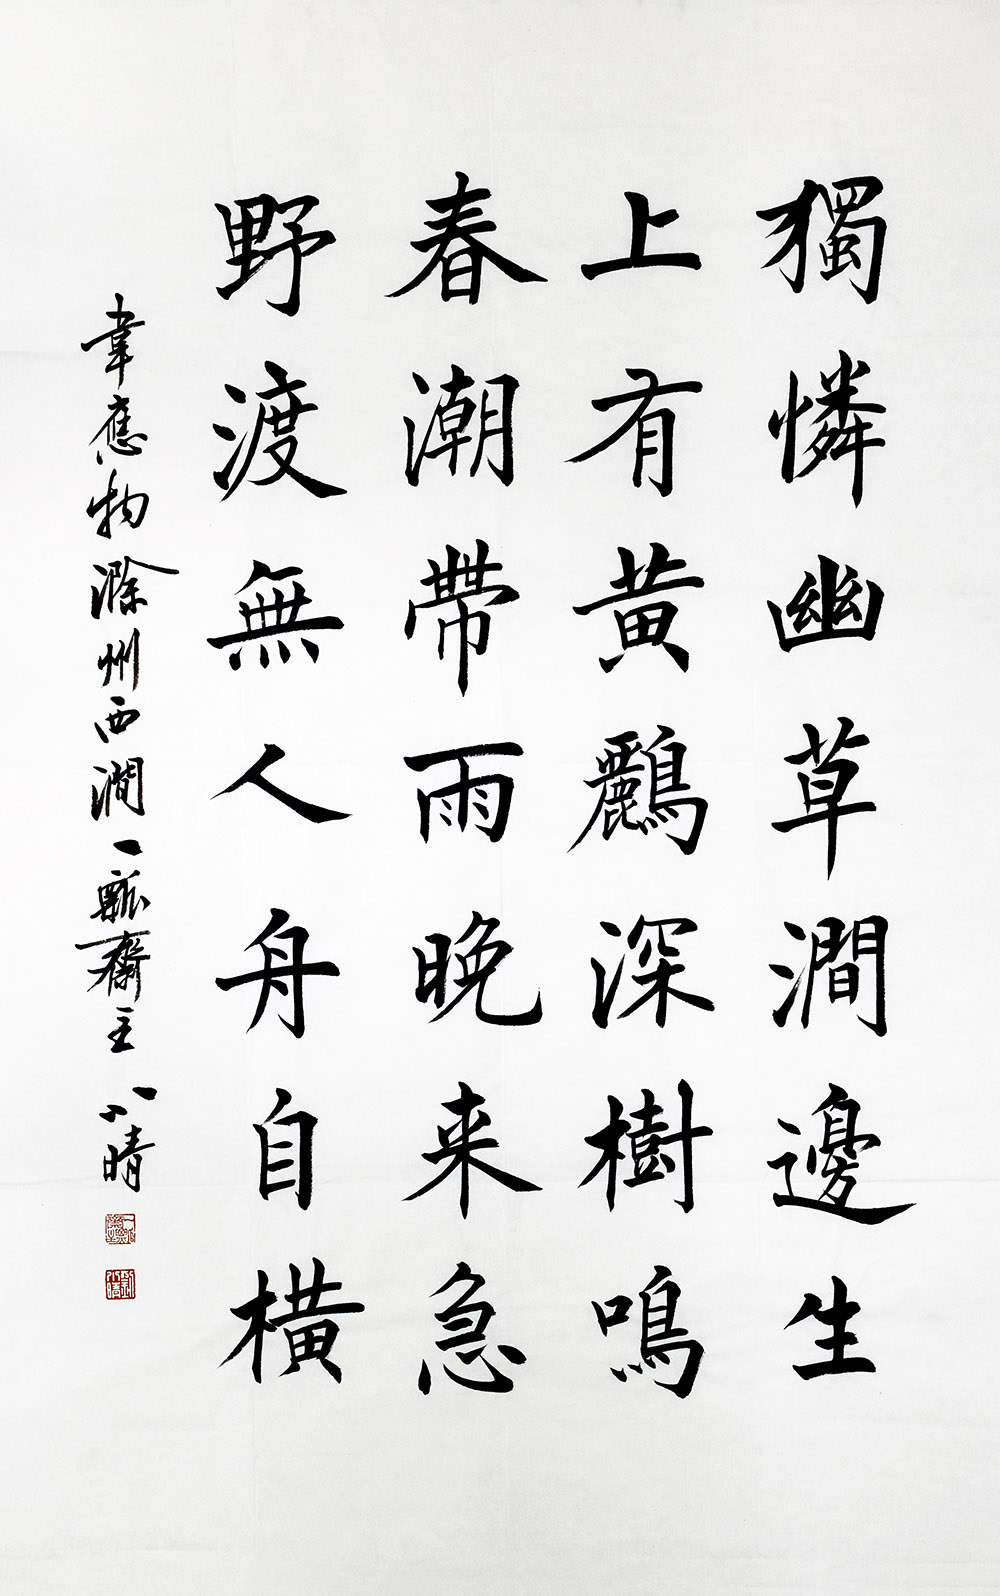 獨憐幽草澗邊生
上有黃鸝深樹鳴
春潮帶雨晚来急
野渡無人舟自橫
韋應物滁州西澗一瓢齋主八晴